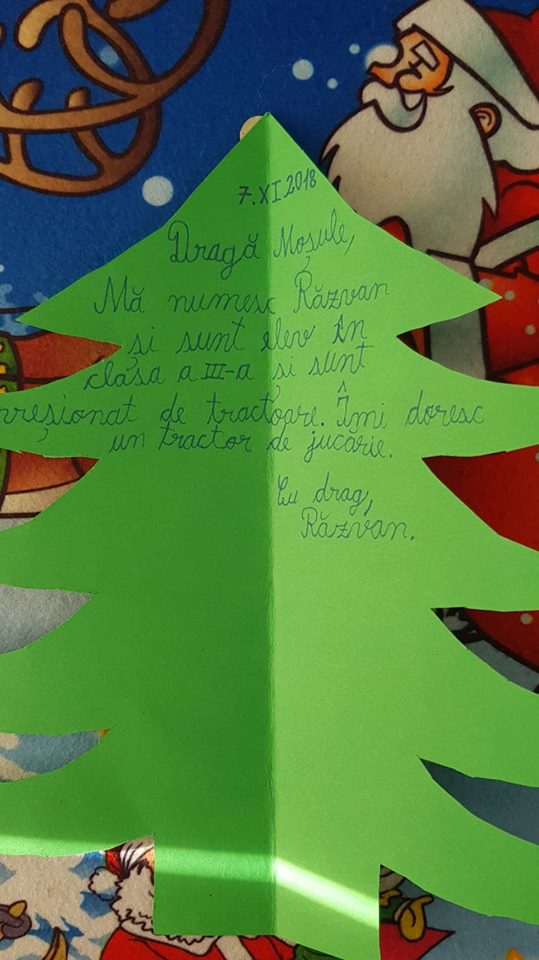 7.XI.2018
Dragă Moșule,
Mă numesc Răzvan
și sunt elev în
clasa a III-a și sunt
nreșionat de tractoare. Îmi doresc
un tractor de jucărie.
Cu drag,
Răzvan.